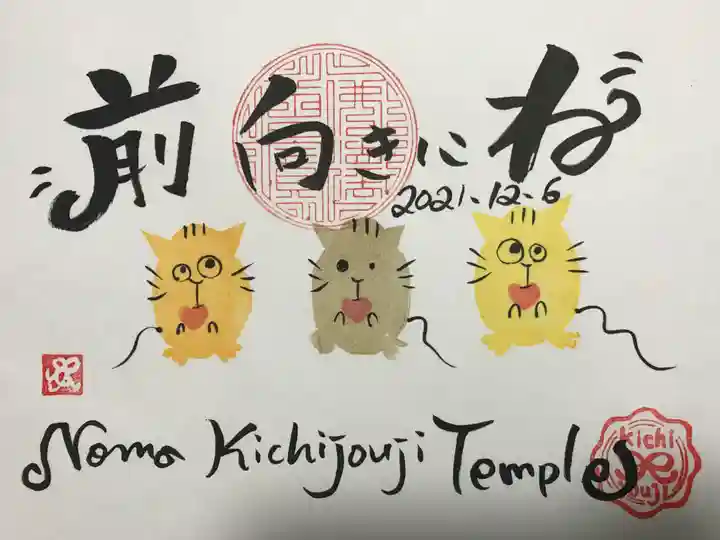 前向きにね
2021.12.6
Noma Kichijouji Temple
Kichi
jouji